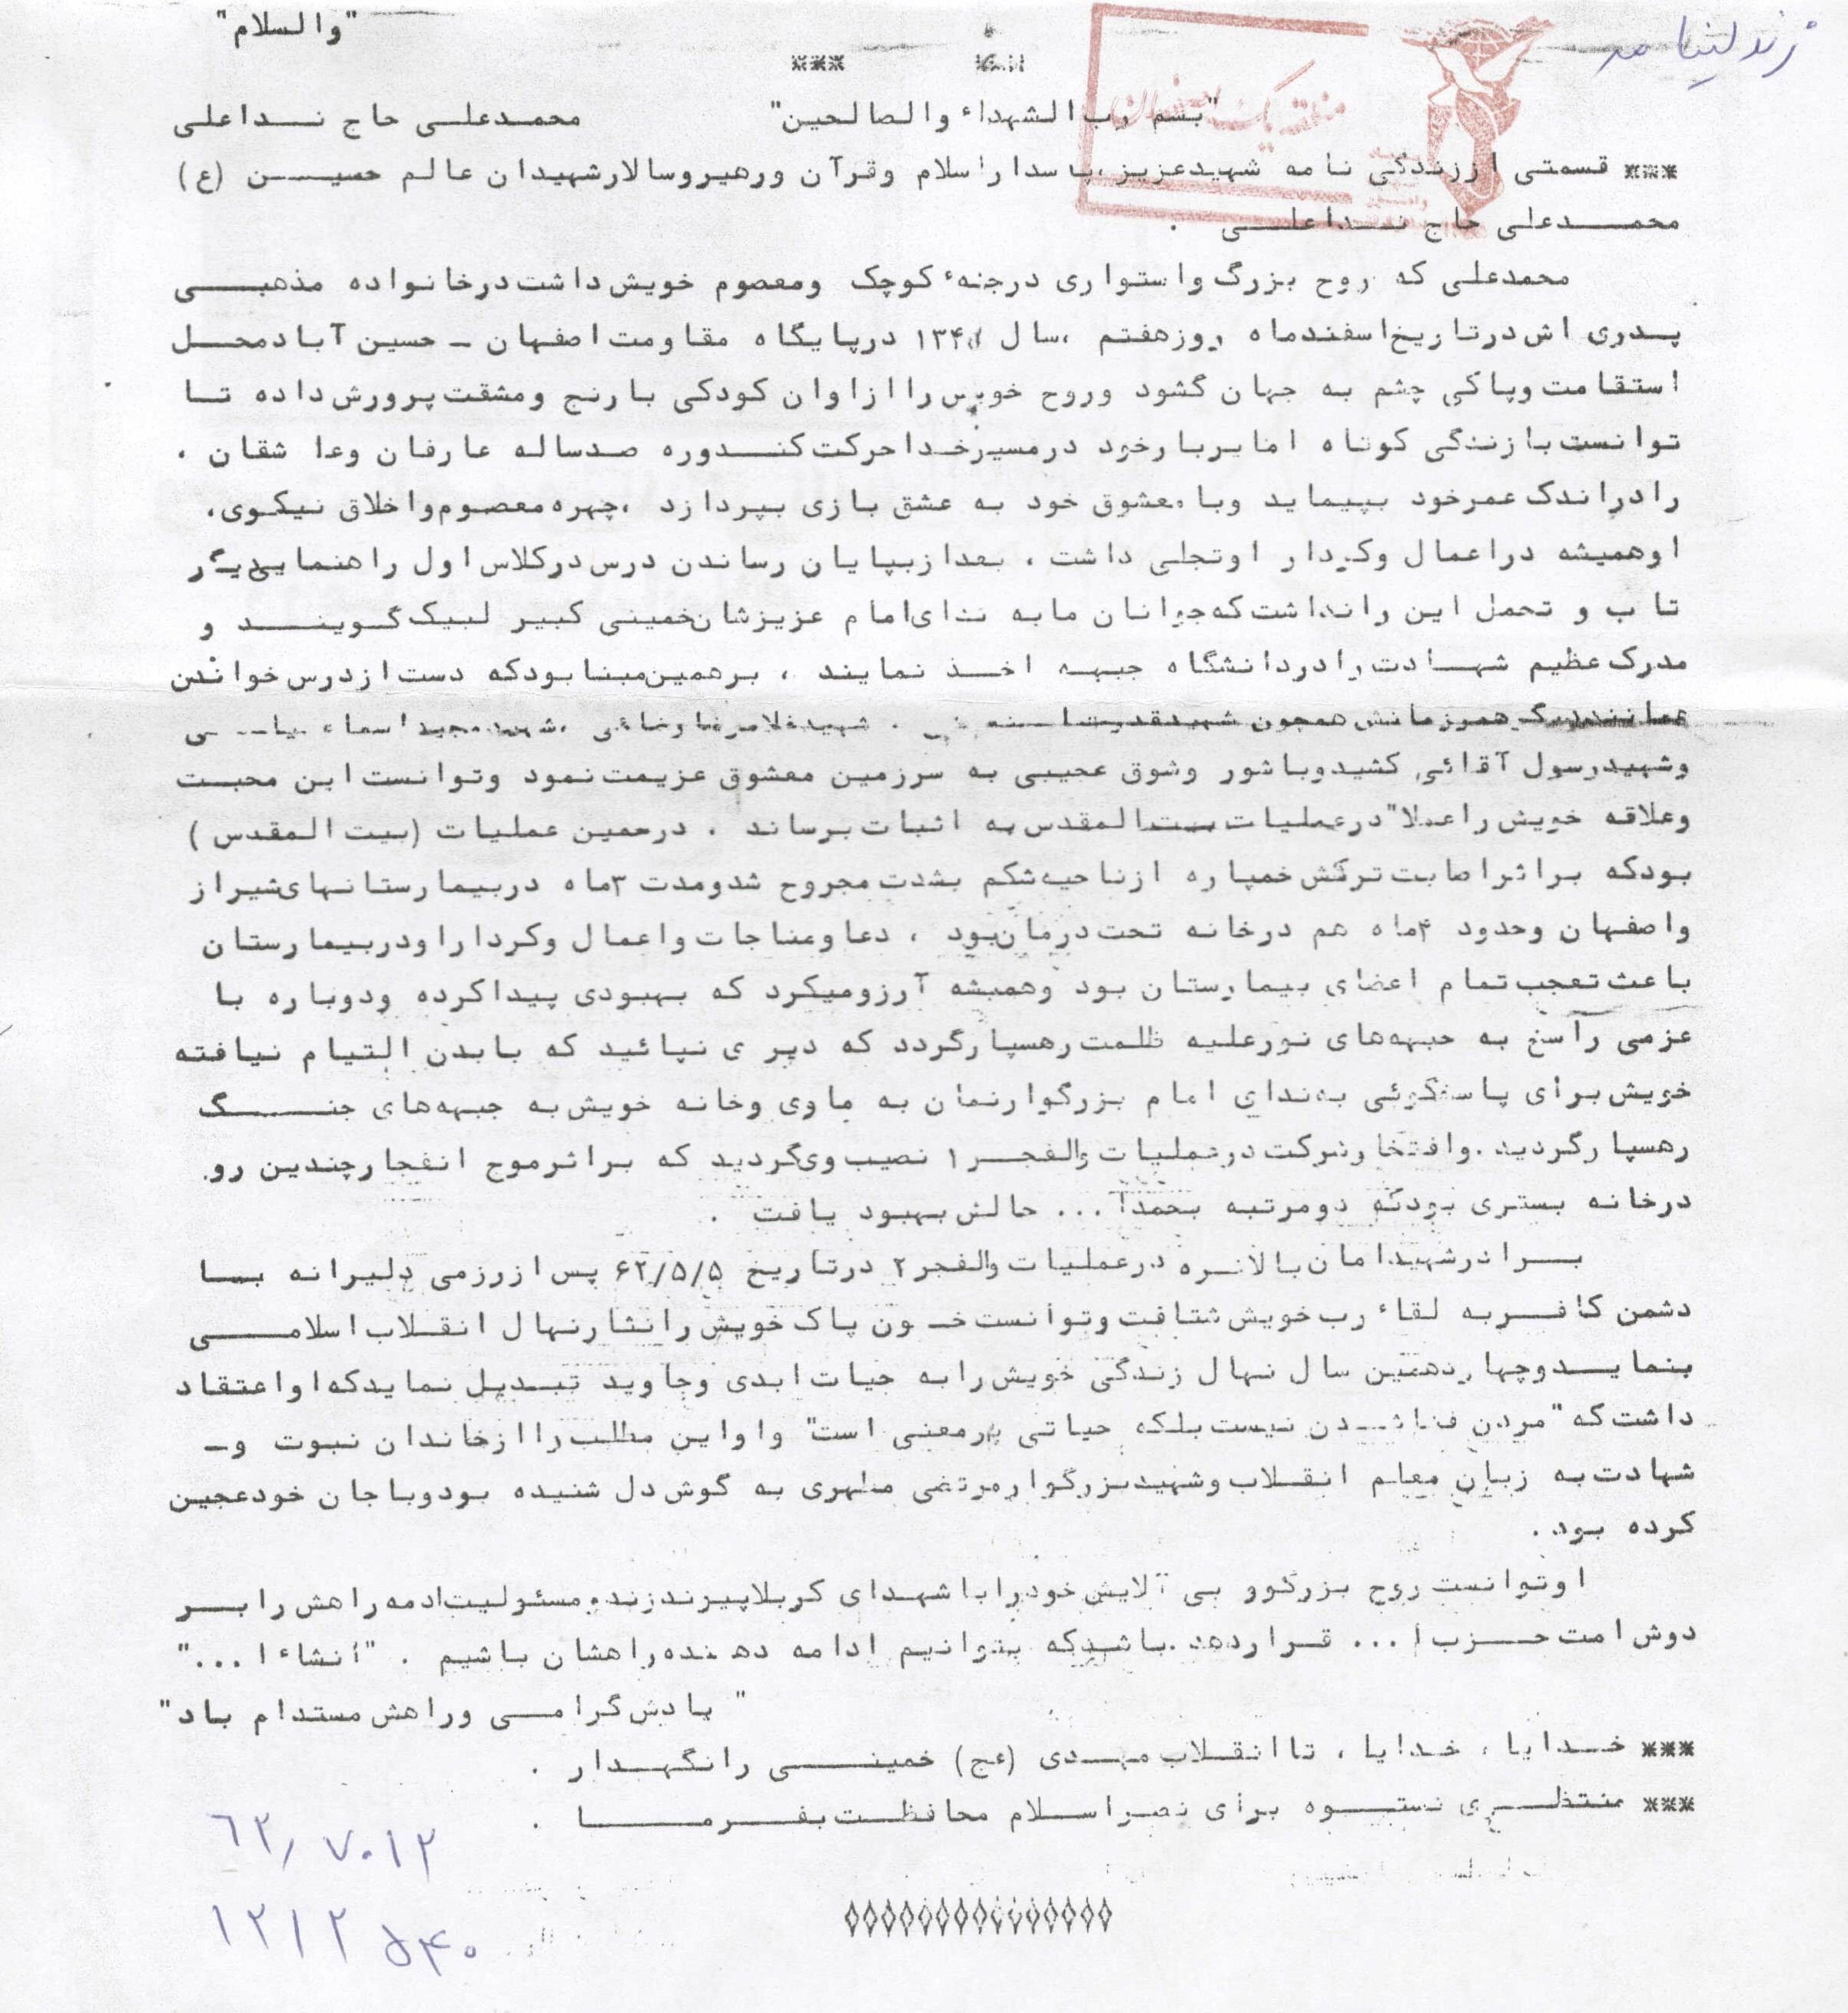 زندگینامه
"والسلام"
***
"بسم رب الشهداء والصالحین" محمدعلی حاج نداعلی
*** قسمتی اززندگی نامه شهیدعزیز،پاسداراسلام وقرآن ورهیروسالارشهیدان عالم حسین (ع)
محمدعلی حاج نداعلی .
محمدعلی که روح بزرگ واستواری درجثهء کوچک ومعصوم خویش داشت درخانواده مذهبی
پدری اش درتاریخ اسفندماه روزهفتم ،سال درپایگاه مقاومت اصفهان - حسین آبادمحل
استقامت وپاکی چشم به جهان گشود وروح خویش راازاوان کودکی بارنج ومشقت پرورش داده تا
توانست بازندگی کوتاه امایربارخود درمسیرخداحرکت کندوره صدساله عارفان وعاشقان .
رادراندک عمرخود بپیماید وبامعشوق خود به عشق بازی بپردازد ،چهره معصوم واخلاق نیکوی،
اوهمیشه دراعمال وکردار اوتجلی داشت ، بعدازبپایان رساندن درس درکلاس اول راهنمایی یگر
تاب و تحمل این رانداشت که جوانان مابه ندای امام عزیزشان خمینی کبیر لبیک گویند و
مدرک عظیم شهادت رادردانشگاه جبهه اخذ نمایند ، برهمین مبنا بودکه دست ازدرس خواندن
همرزمانش همچون شهیدقدرت . شهیدغلامرضا رضائی ،شهیدمجید
وشهیدرسول آقائی کشیدوباشور وشوق عجیبی به سرزمین معشوق عزیمت نمود وتوانست این محبت
وعلاقه خویش راعملا" درعملیات بیت المقدس به اثبات برساند . درهمین عملیات (بیت المقدس )
بودکه براثراصابت ترکش خمپاره ازناحیه شکم بشدت مجروح شدومدت ۳ماه دربیمارستانهای شیراز
واصفهان وحدود ۴ماه هم درخانه تحت درمان بود ، دعاومناجات واعمال وکرداراودربیمارستان
باعث تعجب تمام اعضای بیمارستان بود وهمیشه آرزومیکرد که بهبودی پیداکرده ودوباره با
عزمی راسخ به جبهه های نورعلیه ظلمت رهسپارگردد که دیر ی نپائید که بابدن التیام نیافته
خویش برای پاسخگوئی به ندای امام بزرگوارنمان به ماوی وخانه خویش به جبهه های جنگ
رهسپارگردید .وافتخارشرکت درعملیات والفجر۱ نصیب وی گردید که براثرموج انفجارچندین رو.
درخانه بستری بودکه دومرتبه بحمدا ... حالش بهبود یافت .
برادرشهیدامان بالاخره درعملیات والفجر۲ درتاریخ ۶۲/۵/۵ پس ازرزمی دلیرانه با
دشمن کافربه لقاء رب خویش شتافت وتوانست خون پاک خویش رانثارنهال انقلاب اسلامی
بنمایدوچهاردهمین سال نهال زندگی خویش رابه حیات ابدی وجاوید تبدیل نمایدکه اواعتقاد
داشت که "مردن فناشدن نیست بلکه حیاتی پرمعنی است" واواین مطلب راازخاندان نبوت و-
شهادت به زبان معلم انقلاب وشهیدبزرگوارمرتضی مطهری به گوش دل شنیده بودوباجان خودعجین
کرده بود.
اوتوانست روح بزرگوو بی آلایش خودراباشهدای کربلاپیوندزندو مسئولیت ادمه راهش رابر
دوش امت حزب ا ... قراردهد .باشدکه بتوانیم ادامه دهنده راهشان باشیم . "انشاءا ..."
" یادش گرامی وراهش مستدام باد"
*** خدایا ، خدایا ، تاانقلاب مهدی (عج) خمینی رانگهدار .
*** منتظری نستوه برای نصراسلام محافظت بفرما .
۶۲٫۷۰۱۲
۱۲۱۲۵۴۰